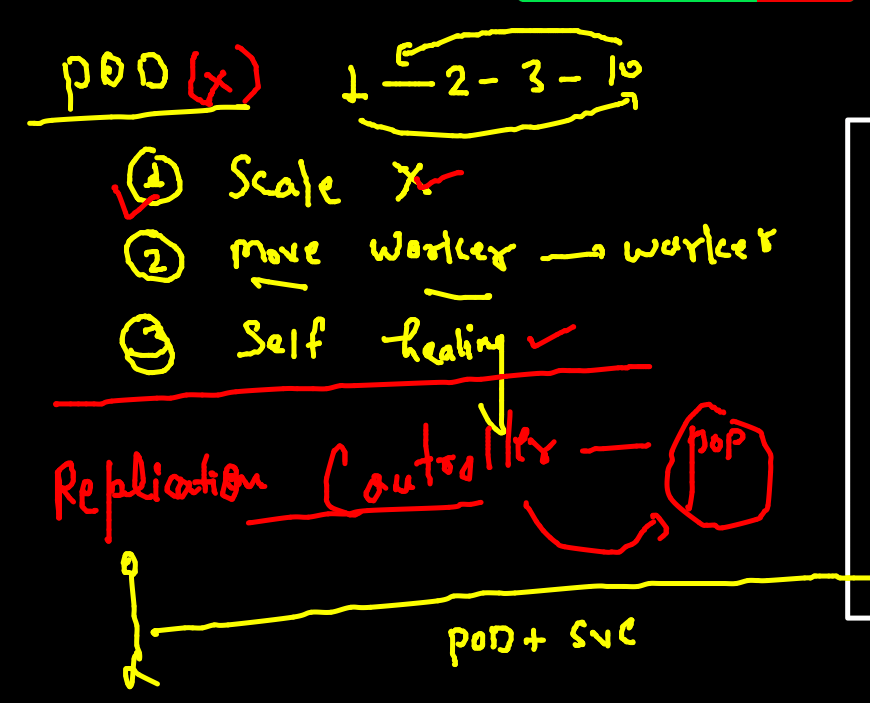 POD (x) 1 — 2 - 3 - 10
1 Scale X
2 move worker → worker
3 Self healing
Replication Controller — POD
POD + SVC